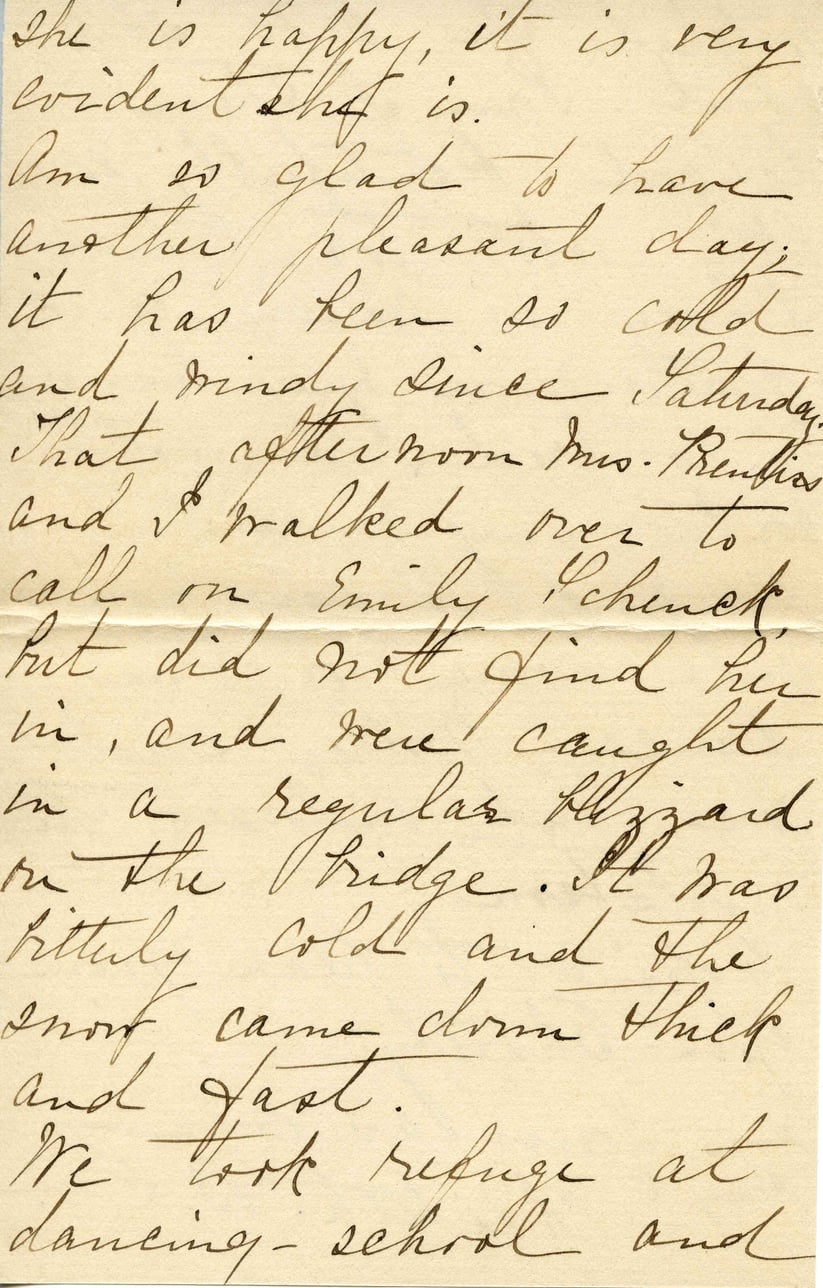 she is happy, it is very
evident she is.
Am so glad to have
another pleasant day;
it has been so cold
and windy since Saturday.
That afternoon Mrs. Prentiss
and I walked over to
call on Emily Schenck,
but did not find her
in, and were caught
in a regular blizzard
on the bridge. It was
bitterly cold and the
snow came down thick
and fast.
We took refuge at
dancing-school and